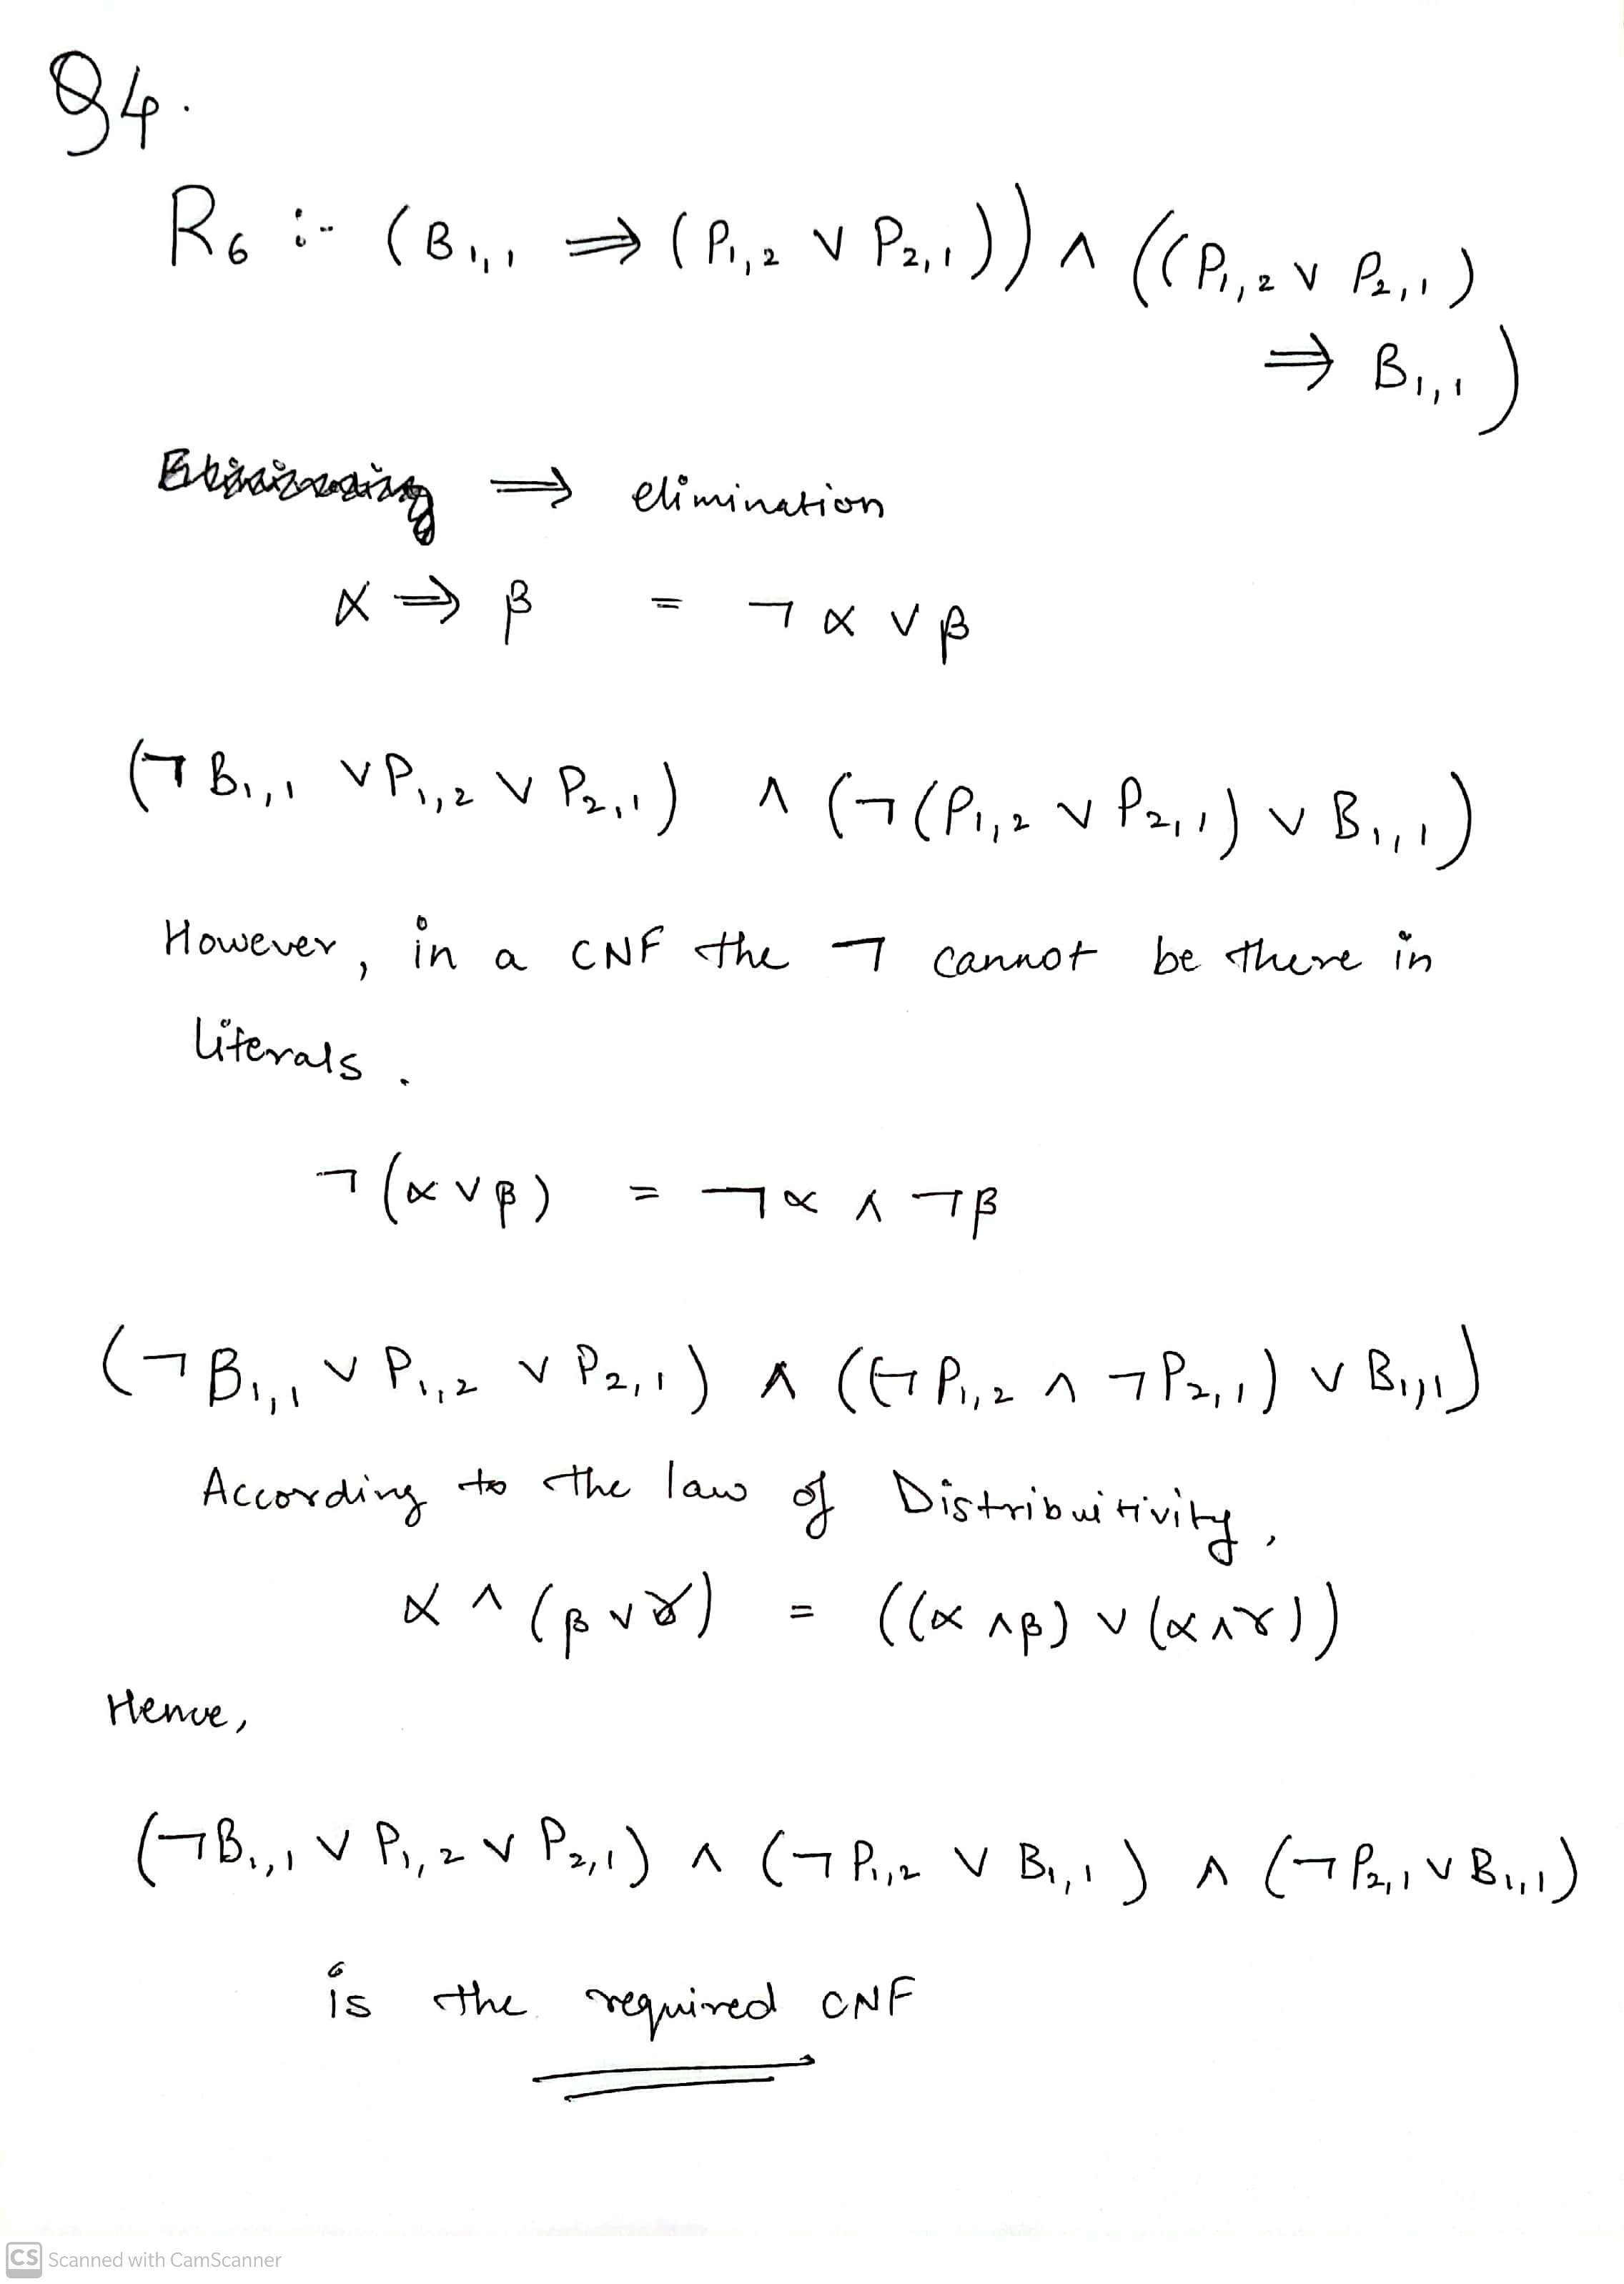 Q4.
R₆ :- (B₁,₁ ⇒ (P₁,₂ ∨ P₂,₁)) ∧ ((P₁,₂ ∨ P₂,₁)
⇒ B₁,₁)
⇒ elimination
α ⇒ β = ¬α ∨ β
(¬B₁,₁ ∨ P₁,₂ ∨ P₂,₁) ∧ (¬(P₁,₂ ∨ P₂,₁) ∨ B₁,₁)
However, in a CNF the ¬ cannot be there in
literals.
¬(α ∨ β) = ¬α ∧ ¬β
(¬B₁,₁ ∨ P₁,₂ ∨ P₂,₁) ∧ ((¬P₁,₂ ∧ ¬P₂,₁) ∨ B₁,₁)
According to the law of Distribuitivity,
α ∧ (β ∨ γ) = ((α ∧ β) ∨ (α ∧ γ))
Hence,
(¬B₁,₁ ∨ P₁,₂ ∨ P₂,₁) ∧ (¬P₁,₂ ∨ B₁,₁) ∧ (¬P₂,₁ ∨ B₁,₁)
is the required CNF
CS Scanned with CamScanner